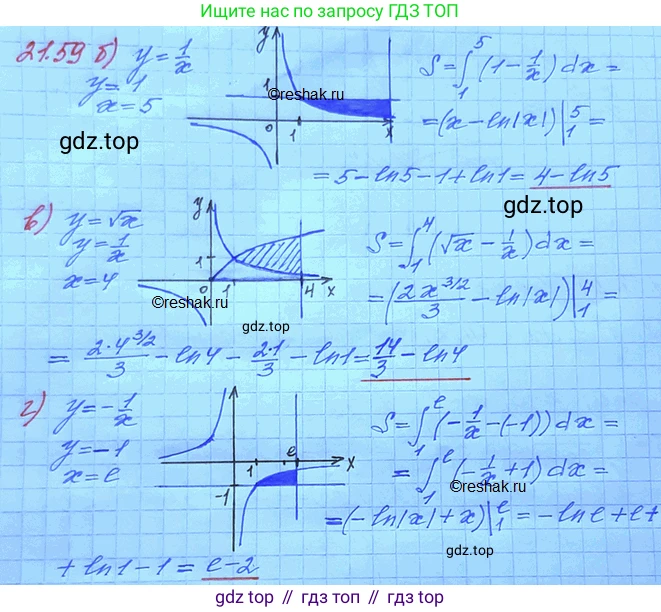 Ищите нас по запросу ГДЗ ТОП
21.59 б) y = 1/x
y = 1
x = 5
y
1
0 1 x
©reshak.ru
gdz.top
S = ∫₁⁵ (1 - 1/x) dx =
= (x - ln|x|)|₁⁵ =
= 5 - ln5 - 1 + ln1 = 4 - ln5
gdz.top
в) y = √x
y = 1/x
x = 4
y
1
0 1 4 x
©reshak.ru
gdz.top
S = ∫₁⁴ (√x - 1/x) dx =
= (2x^(3/2)/3 - ln|x|)|₁⁴ =
= 2·4^(3/2)/3 - ln4 - 2·1/3 - ln1 = 14/3 - ln4
г) y = -1/x
y = -1
x = e
1 e x
-1
S = ∫₁ᵉ (-1/x - (-1)) dx =
= ∫₁ᵉ (-1/x + 1) dx =
©reshak.ru
= (-ln|x| + x)|₁ᵉ = -ln e + e +
gdz.top
+ ln1 - 1 = e - 2
gdz.top // гдз топ // gdz.top // гдз топ // gdz.top